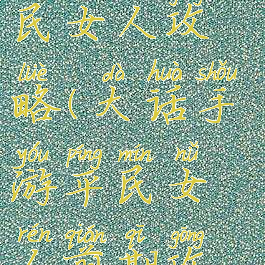 民女人设
lüè dà huà shǒu
略(大话手
yóu píng mín nǚ
游平民女
rén qián qī gōng
人前期攻